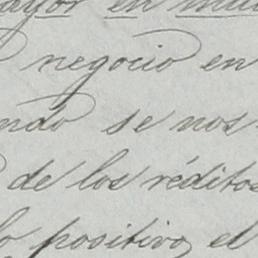 ayor en mu
negocio en
ndo se nos
de los réditos
lo positivo, el